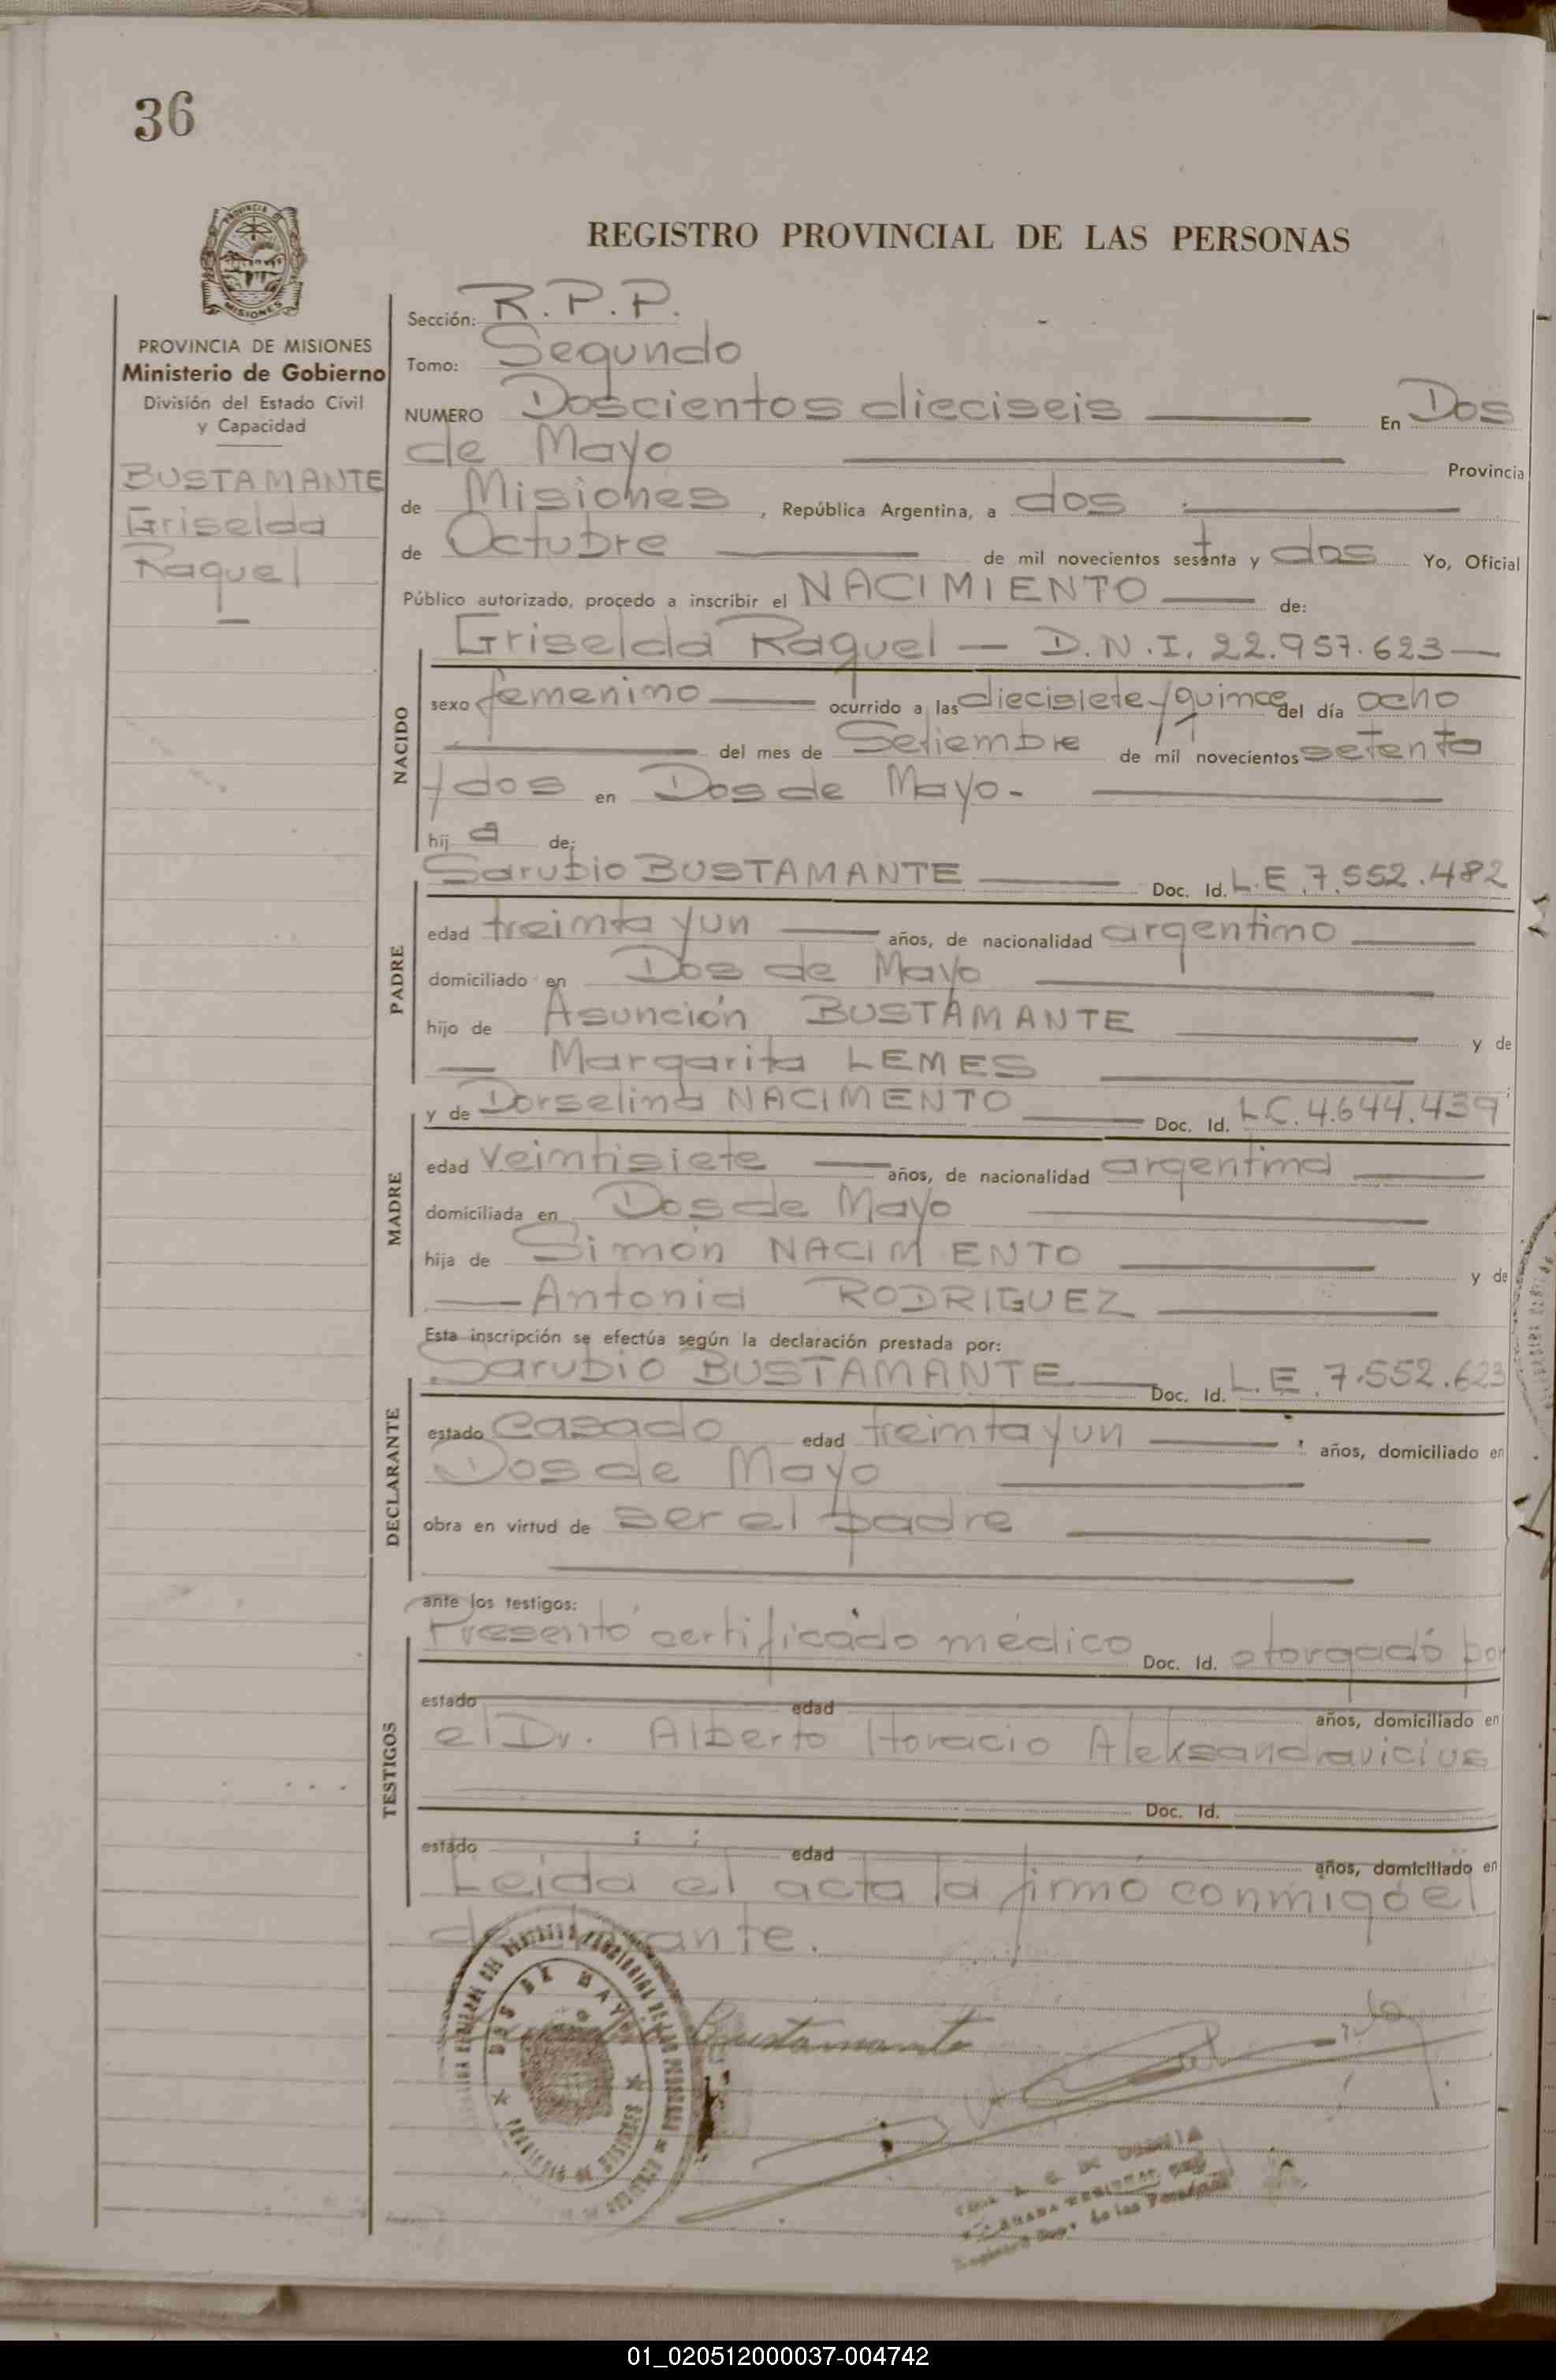 36
REGISTRO PROVINCIAL DE LAS PERSONAS
PROVINCIA DE MISIONES
Ministerio de Gobierno
División del Estado Civil
y Capacidad
BUSTAMANTE
Griselda
Raquel
Sección: R.P.P.
Tomo: Segundo
NUMERO Doscientos dieciseis En Dos
de Mayo Provincia
de Misiones, República Argentina, a dos
de Octubre de mil novecientos setenta y dos Yo, Oficial
Público autorizado, procedo a inscribir el NACIMIENTO de:
Griselda Raquel — D.N.I. 22.957.623 —
NACIDO
sexo femenino ocurrido a las diecisiete y quince del día ocho
del mes de Setiembre de mil novecientos setenta
y dos en Dos de Mayo.-
hij a de:
Sarubio BUSTAMANTE Doc. Id. L.E. 7.552.482
PADRE
edad treinta y un años, de nacionalidad argentino
domiciliado en Dos de Mayo
hijo de Asunción BUSTAMANTE y de
— Margarita LEMES
y de Dorselina NACIMENTO Doc. Id. L.C. 4.644.439
MADRE
edad Veintisiete años, de nacionalidad argentina
domiciliada en Dos de Mayo
hija de Simón NACIMENTO y de
— Antonia RODRIGUEZ
Esta inscripción se efectúa según la declaración prestada por:
Sarubio BUSTAMANTE Doc. Id. L.E. 7.552.623
DECLARANTE
estado casado edad treinta y un años, domiciliado en
Dos de Mayo
obra en virtud de ser el padre
ante los testigos:
Presentó certificado médico Doc. Id. otorgado por
TESTIGOS
estado edad años, domiciliado en
el Dr. Alberto Horacio Aleksandravicius
Doc. Id.
estado edad años, domiciliado en
Leida el acta la firmó conmigo el
declarante.
DOS DE MAYO
Bustamante
01_020512000037-004742